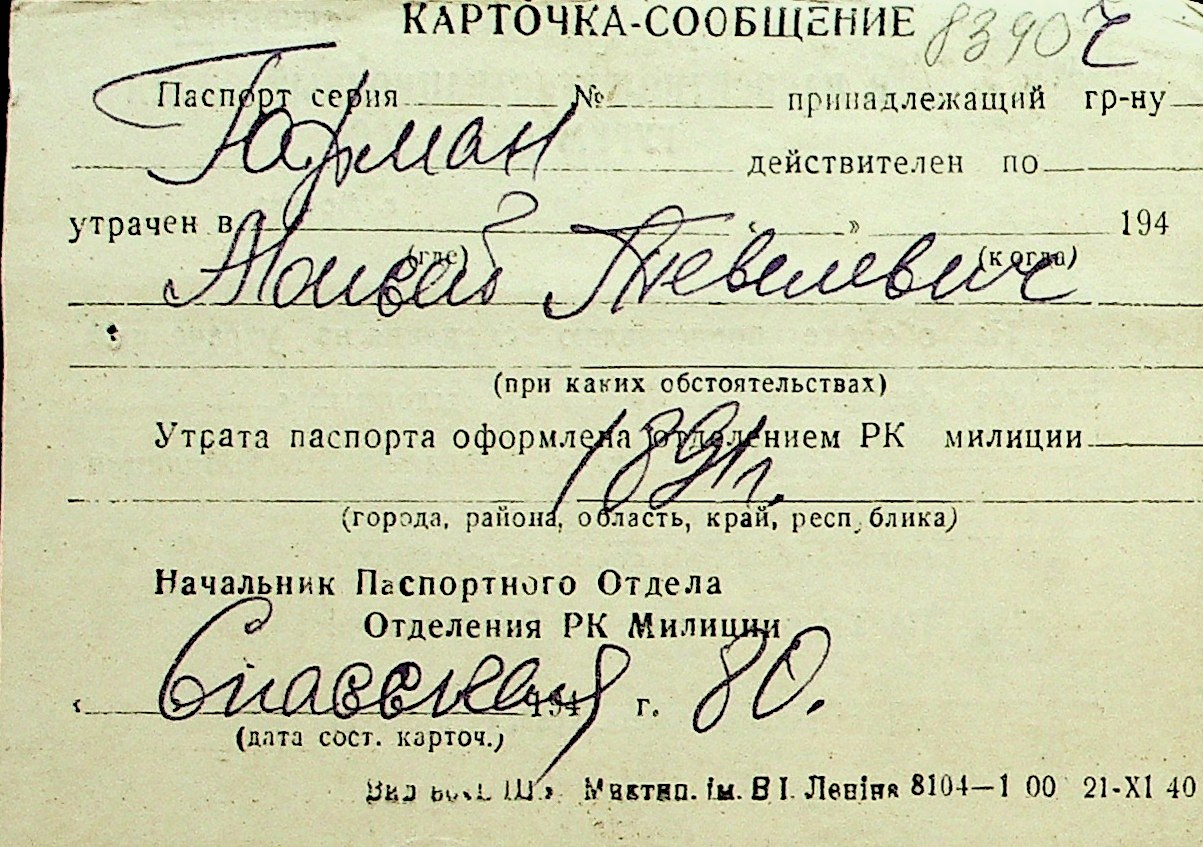 КАРТОЧКА-СООБЩЕНИЕ 8390
Паспорт серия № принадлежащий гр-ну
действителен по
утрачен в « » 194
(где) (когда)
Мойсей Тевелевич
(при каких обстоятельствах)
Утрата паспорта оформлена отделением РК милиции
1891 г.
(города, района, область, край, респ блика)
Начальник Паспортного Отдела
Отделения РК Милиции
Спасская 80.
« 194 г.
(дата сост. карточ.)
Миктип. ім. В І. Леніна 8104—1 00 21-XI 40